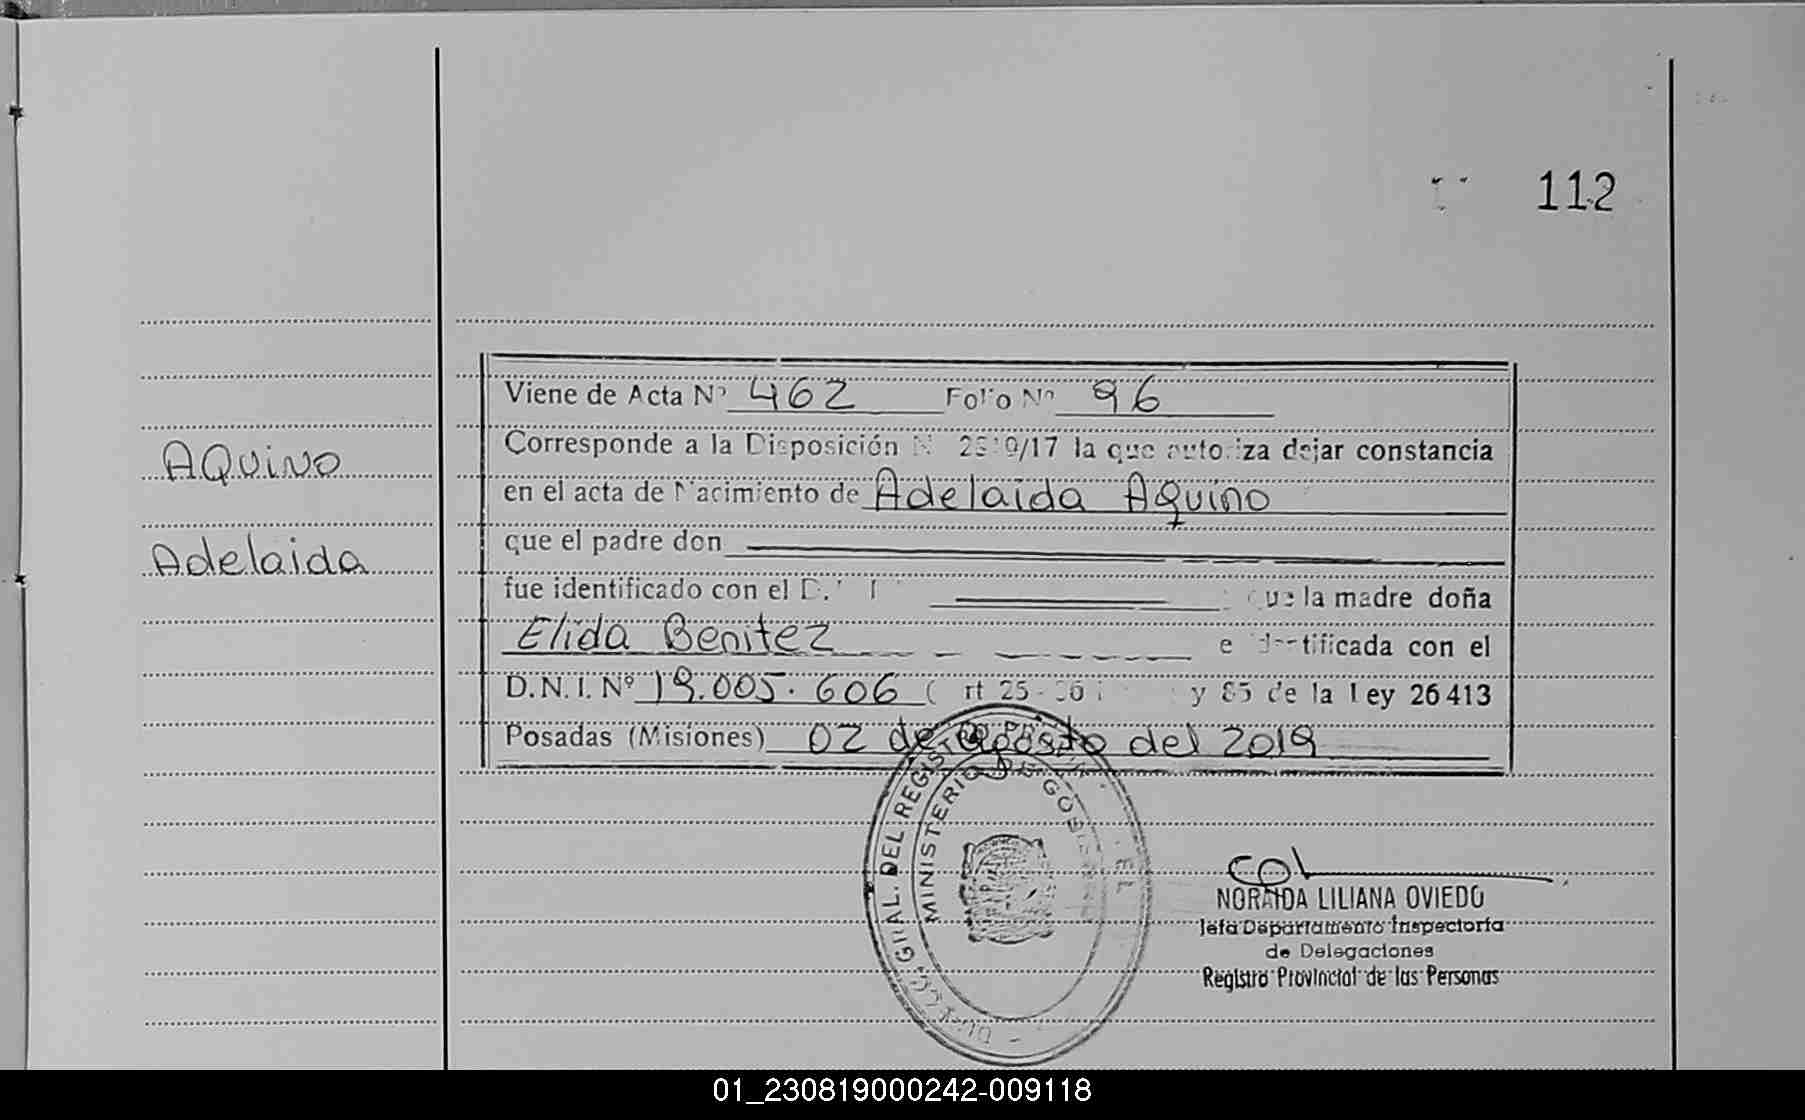 112
Viene de Acta Nº 462 Folio Nº 96
Corresponde a la Disposición N 2519/17 la que autoriza dejar constancia
AQUINO
en el acta de Nacimiento de Adelaida Aquino
que el padre don
Adelaida
fue identificado con el D. que la madre doña
Elida Benitez e identificada con el
D.N.I. Nº 19.005.606 ( rt 25 - 36 y 85 de la Ley 26413
Posadas (Misiones) 02 de agosto del 2019
GRAL. DEL REGISTRO
MINISTERIO DE GOBIERNO
NORAIDA LILIANA OVIEDO
Jefa Departamento Inspectoría
de Delegaciones
Registro Provincial de las Personas
01_230819000242-009118